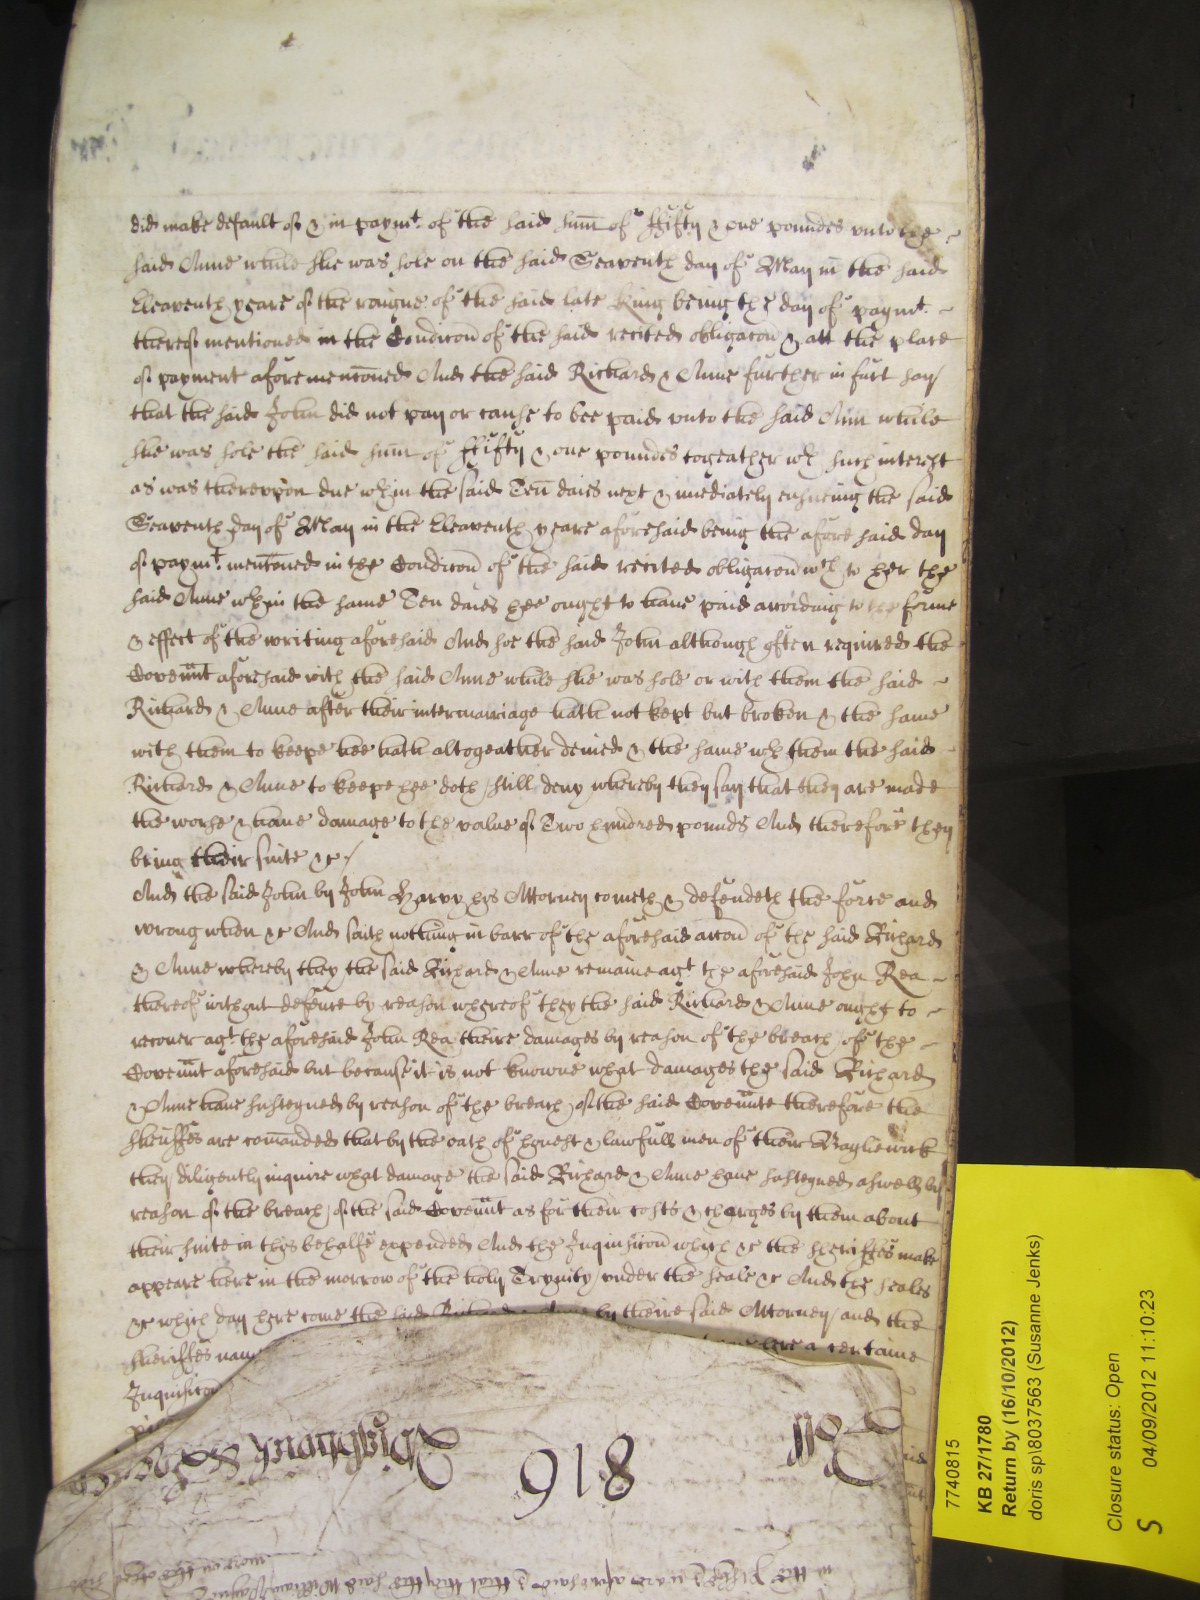 did make default of & in paymt. of the said sum̄ of ffifty & one poundes vnto the
said Anne while she was sole on the said Seaventh day of May in the said
Eleaventh yeare of the raigne of the said late King being the day of paymt.
thereof mentioned in the Condic̄on of the said recited obligac̄on & att the place
of payment aforemenc̄oned And the said Richard & Anne further in fact say
that the said John did not pay or cause to bee paid vnto the said Ann while
she was sole the said sum̄ of ffifty & one poundes togeather wth such interest
as was therevpon due wthin the said Ten daies next & im̄ediately ensueing the said
Seaventh day of May in the Eleaventh yeare aforesaid being the afore said day
of paymt. menc̄oned in the Condic̄on of the said recited obligac̄on wch to her the
said Anne wthin the same Ten daies hee ought to haue paid according to the forme
& effect of the writing aforesaid And soe the said John although often required the
Coven̄nt aforesaid with the said Anne while she was sole or with them the said
Richard & Anne after their intermarriage hath not kept but broken & the same
with them to keepe hee hath altogeather denied & the same wth them the said
Richard & Anne to keepe hee doth still deny whereby they say that they are made
the worse & haue damage to the value of Two hundred pounds And therefore they
bring their suite &c /
And the said John by John Harvy his Attorney cometh & defendeth the force and
wrong when &c And saith nothing in barr of the aforesaid acc̄on of the said Richard
& Anne whereby they the said Richard & Anne remaine agt. the aforesaid John Rea
thereof without defence by reason whereof they the said Richard & Anne ought to
recouer agt. the aforesaid John Rea theire damages by reason of the breach of the
Coven̄nt aforesaid but because it is not knowne what damages the said Richard
& Anne haue susteyned by reason of the breach of the said Coven̄nte therefore the
sheriffes are com̄anded that by the oath of honest & lawfull men of their Bayliewick
they diligently inquire what damage the said Richard & Anne haue susteyned aswell by
reason of the breach of the said Coven̄nt as for their costs & charges by them about
their suite in this behalfe expended And the Inquisic̄on which &c the sheriffes make
appeare here in the morrow of the holy Trynity vnder the seale &c And the seales
&c which day here come the said by theire said Attorney and the
sheriffes nam here a certaine
Inquisic̄on
918
7740815
KB 27/1780
Return by (16/10/2012)
doris sp\8037563 (Susanne Jenks)
Closure status: Open
04/09/2012 11:10:23
S